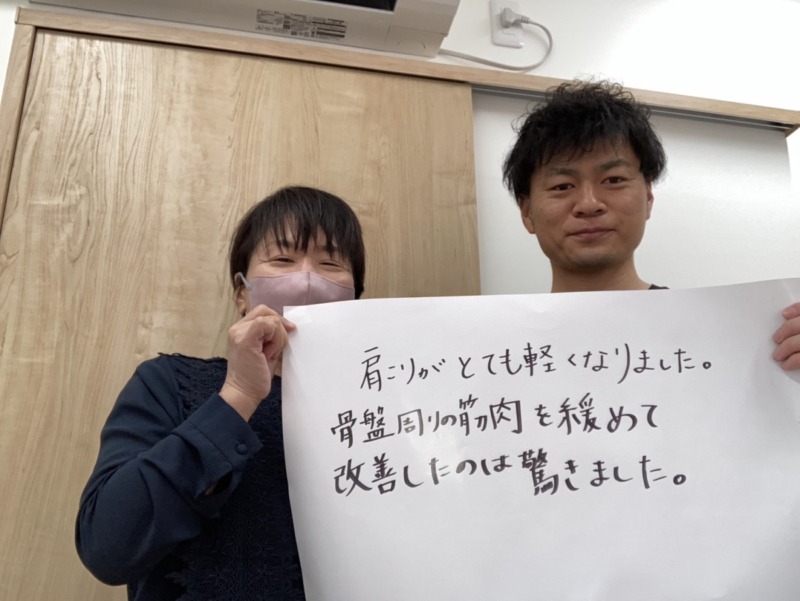 肩こりがとても軽くなりました。
骨盤周りの筋肉を緩めて
改善したのは驚きました。